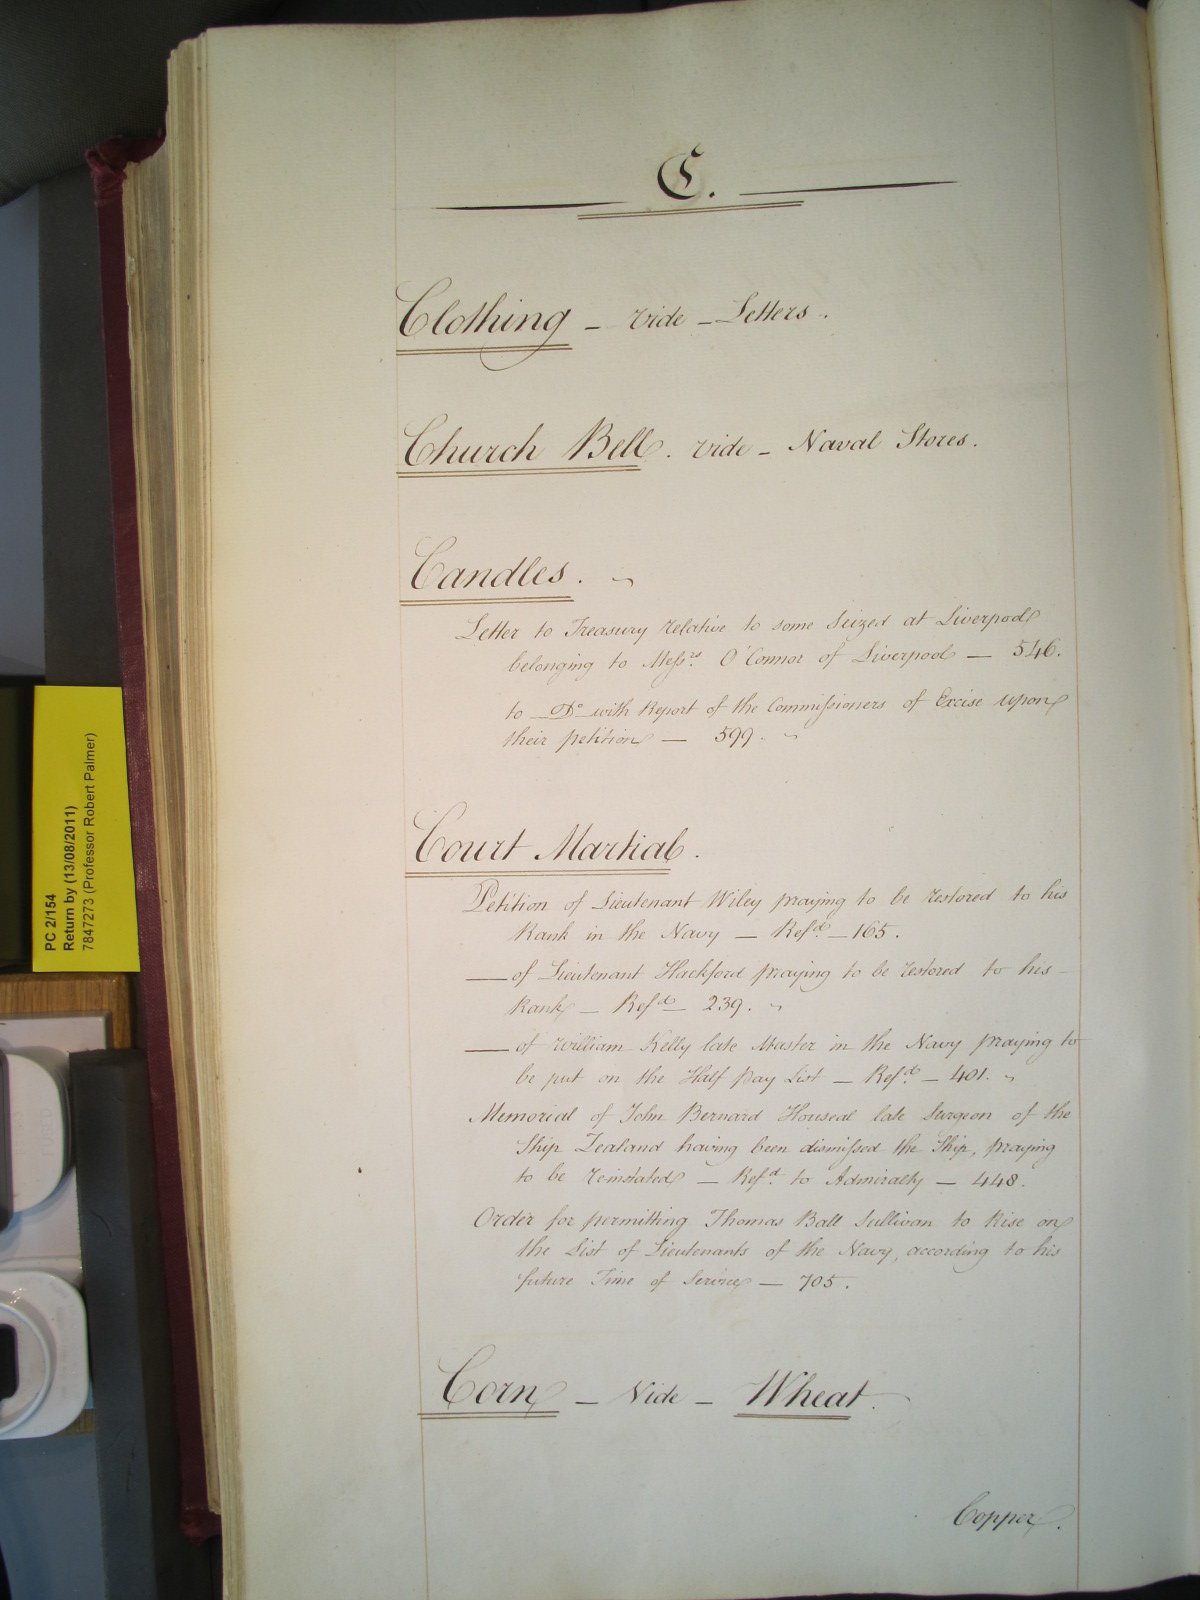 C.
Clothing – vide – Letters.
Church Bell. vide – Naval Stores.
Candles.
Letter to Treasury relative to some seized at Liverpool
belonging to Messrs. O'Connor of Liverpool — 546.
to Do. with Report of the Commissioners of Excise upon
their petition — 599.
Court Martial.
Petition of Lieutenant Wiley praying to be restored to his
Rank in the Navy — Refd. — 165.
— of Lieutenant Hackford praying to be restored to his
Rank — Refd — 239.
— of William Kelly late Master in the Navy praying to
be put on the Half Pay List — Refd. — 401.
Memorial of John Bernard Houseal late Surgeon of the
Ship Zealand having been dismissed the Ship, praying
to be reinstated — Refd. to Admiralty — 448.
Order for permitting Thomas Ball Sullivan to Rise on
the List of Lieutenants of the Navy, according to his
future Time of Service — 705.
Corn – Vide – Wheat.
Copper.
PC 2/154
Return by (13/08/2011)
7847273 (Professor Robert Palmer)